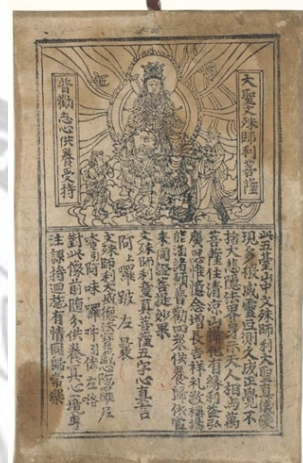 大聖文殊師利菩薩
普勸志心供養受持
此五臺山中文殊師利大聖真儀變
現多般威靈叵測久成正覺不
捨大悲隱法界身示天人相與萬
菩薩住清涼山攝化有緣利益弘
廣思惟憶念增長吉祥禮敬稱揚
能滿諸願普勸四眾供養歸依當
來同證菩提妙果
文殊師利童真菩薩五字心真言
阿上囉跛左曩
文殊師利大威德法寶藏心陀羅尼
阿味囉吽引佉左路
對此像前隨分供養冀心專
注課持迴施有情同歸常樂